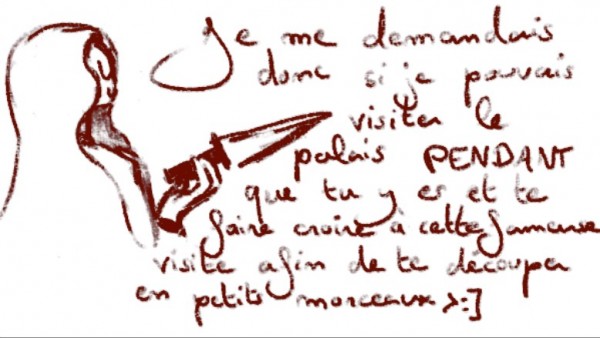 Je me demandais
donc si je pouvais
visiter le
palais PENDANT
que tu y es et te
faire croire à cette fameuse
visite afin de te découper
en petits morceaux >:]